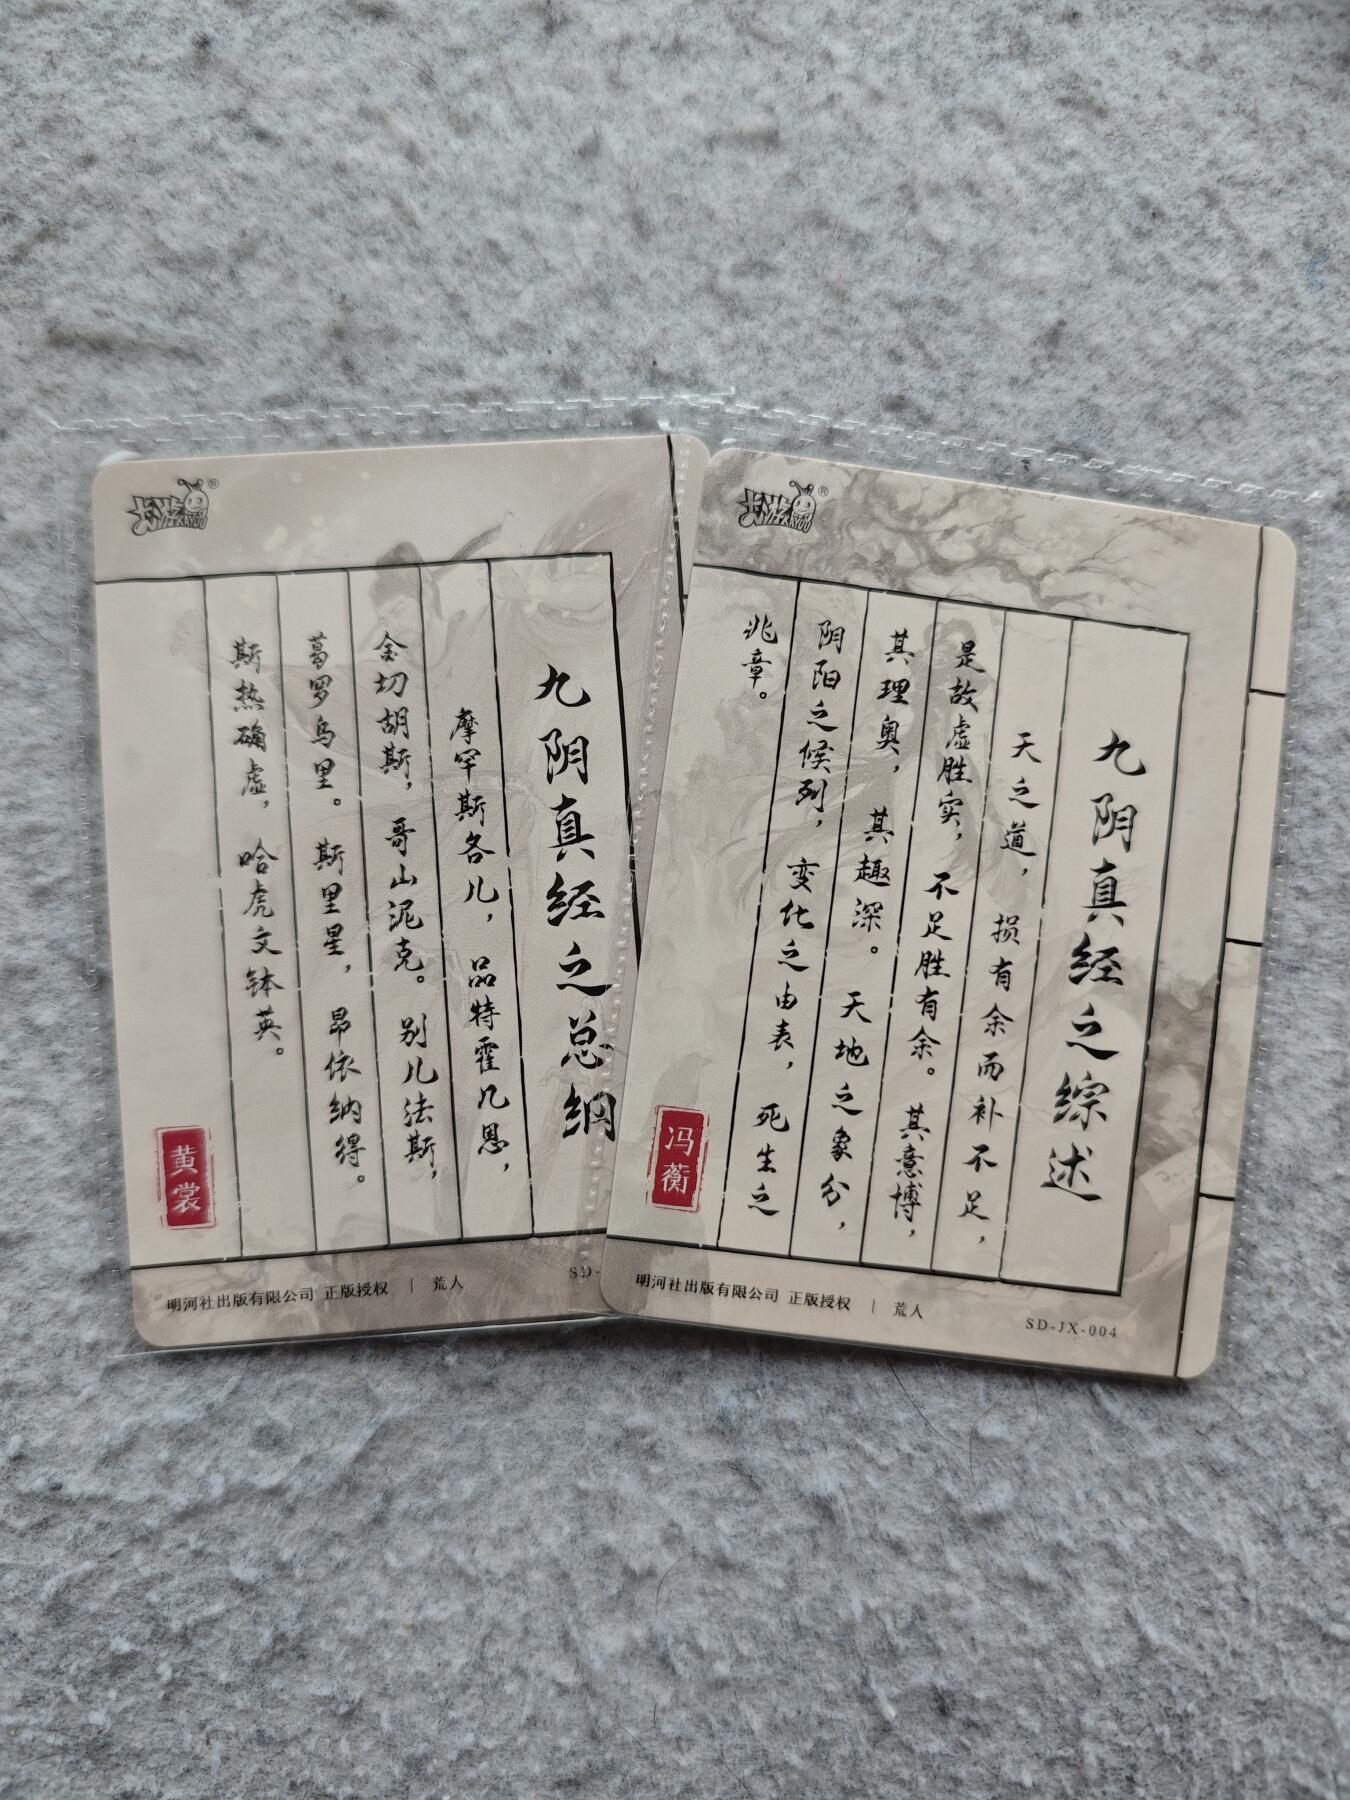 卡游
KAYOU
九阴真经之总纲
摩罕斯各儿，品特霍几恩，
金切胡斯，哥山泥克。别儿法斯，
葛罗乌里。斯里星，昂依纳得。
斯热确虚，哈虎文钵英。
黄裳
明河社出版有限公司 正版授权 | 荒人
SD-
卡游
KAYOU
九阴真经之综述
天之道，损有余而补不足，
是故虚胜实，不足胜有余。其意博，
其理奥，其趣深。天地之象分，
阴阳之候列，变化之由表，死生之
兆章。
冯蘅
明河社出版有限公司 正版授权 | 荒人
SD-JX-004